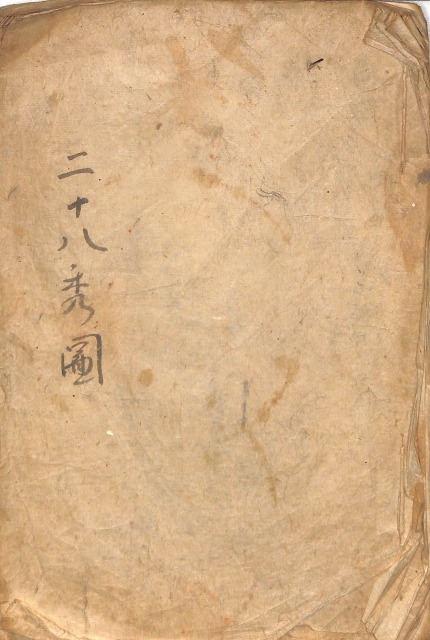 二十八秀圖